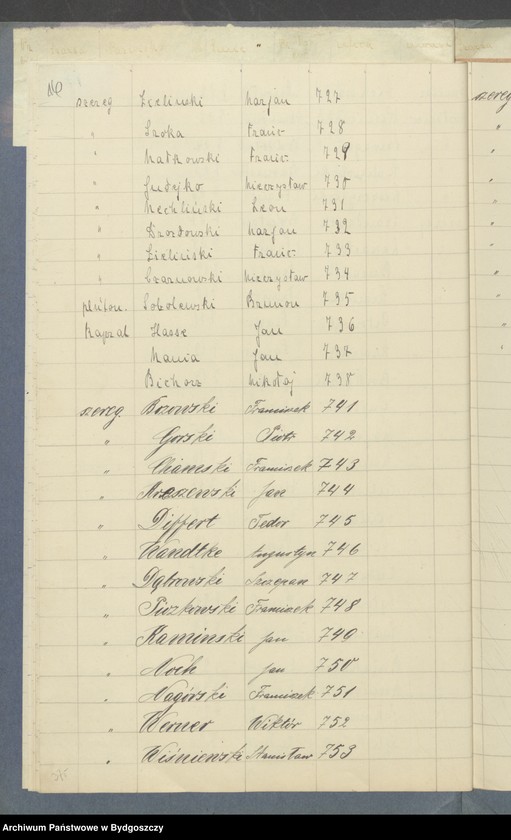 szereg Zieliński Marjan 727
" Sroka Franc. 728
" Małkowski Franc. 729
" Mieczysław 730
" Leon 731
" Drozdowski Marjan 732
" Zieliński Franc. 733
" Czarnowski Mieczysław 734
pluton. Sobolewski Brunon 735
kapral Hasse Jan 736
Mania Jan 737
Mikołaj 738
szereg. Franciszek 741
" Gorski Piotr 742
" Franciszek 743
" Jan 744
" Differt Tedor 745
" Wandtke Augustyn 746
" Dąbrowski Szczepan 747
" Piczkowski Franciszek 748
" Kaminski Jan 749
" Noch Jan 750
" Nagórski Franciszek 751
" Werner Wiktór 752
" Wiśnieński Stanisław 753
szereg
Archiwum Państwowe w Bydgoszczy